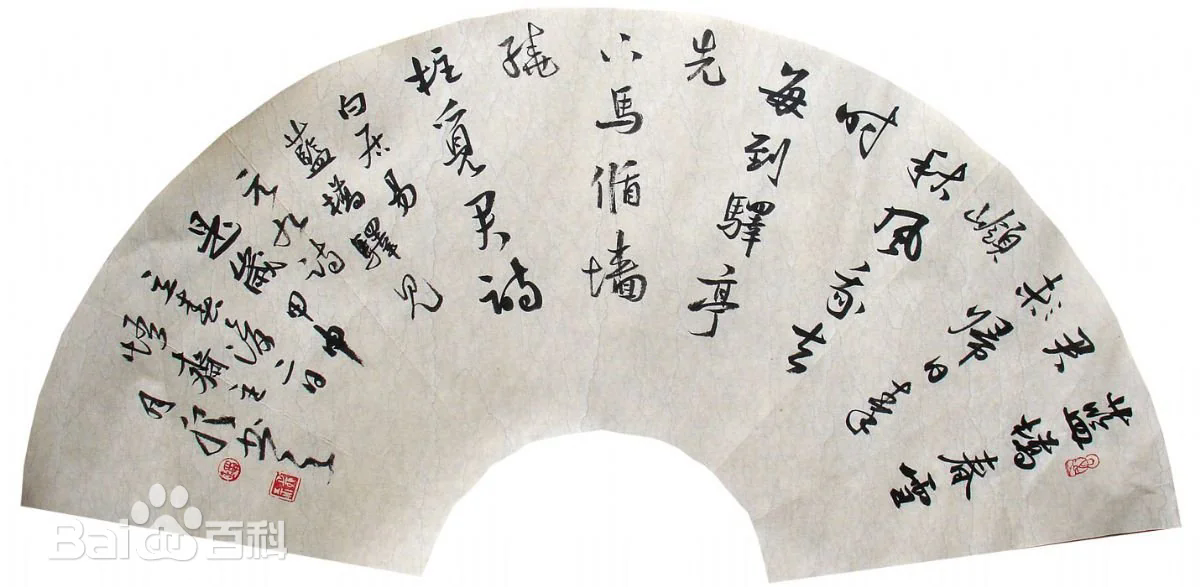 藍橋春雪
君
歸日秦
嶺
秋風我去
時
每到驛亭
先
下馬循墙
繞
柱覓君詩
白居易
藍橋驛見
元九詩
是歲甲申
立春後二日
Bai百科